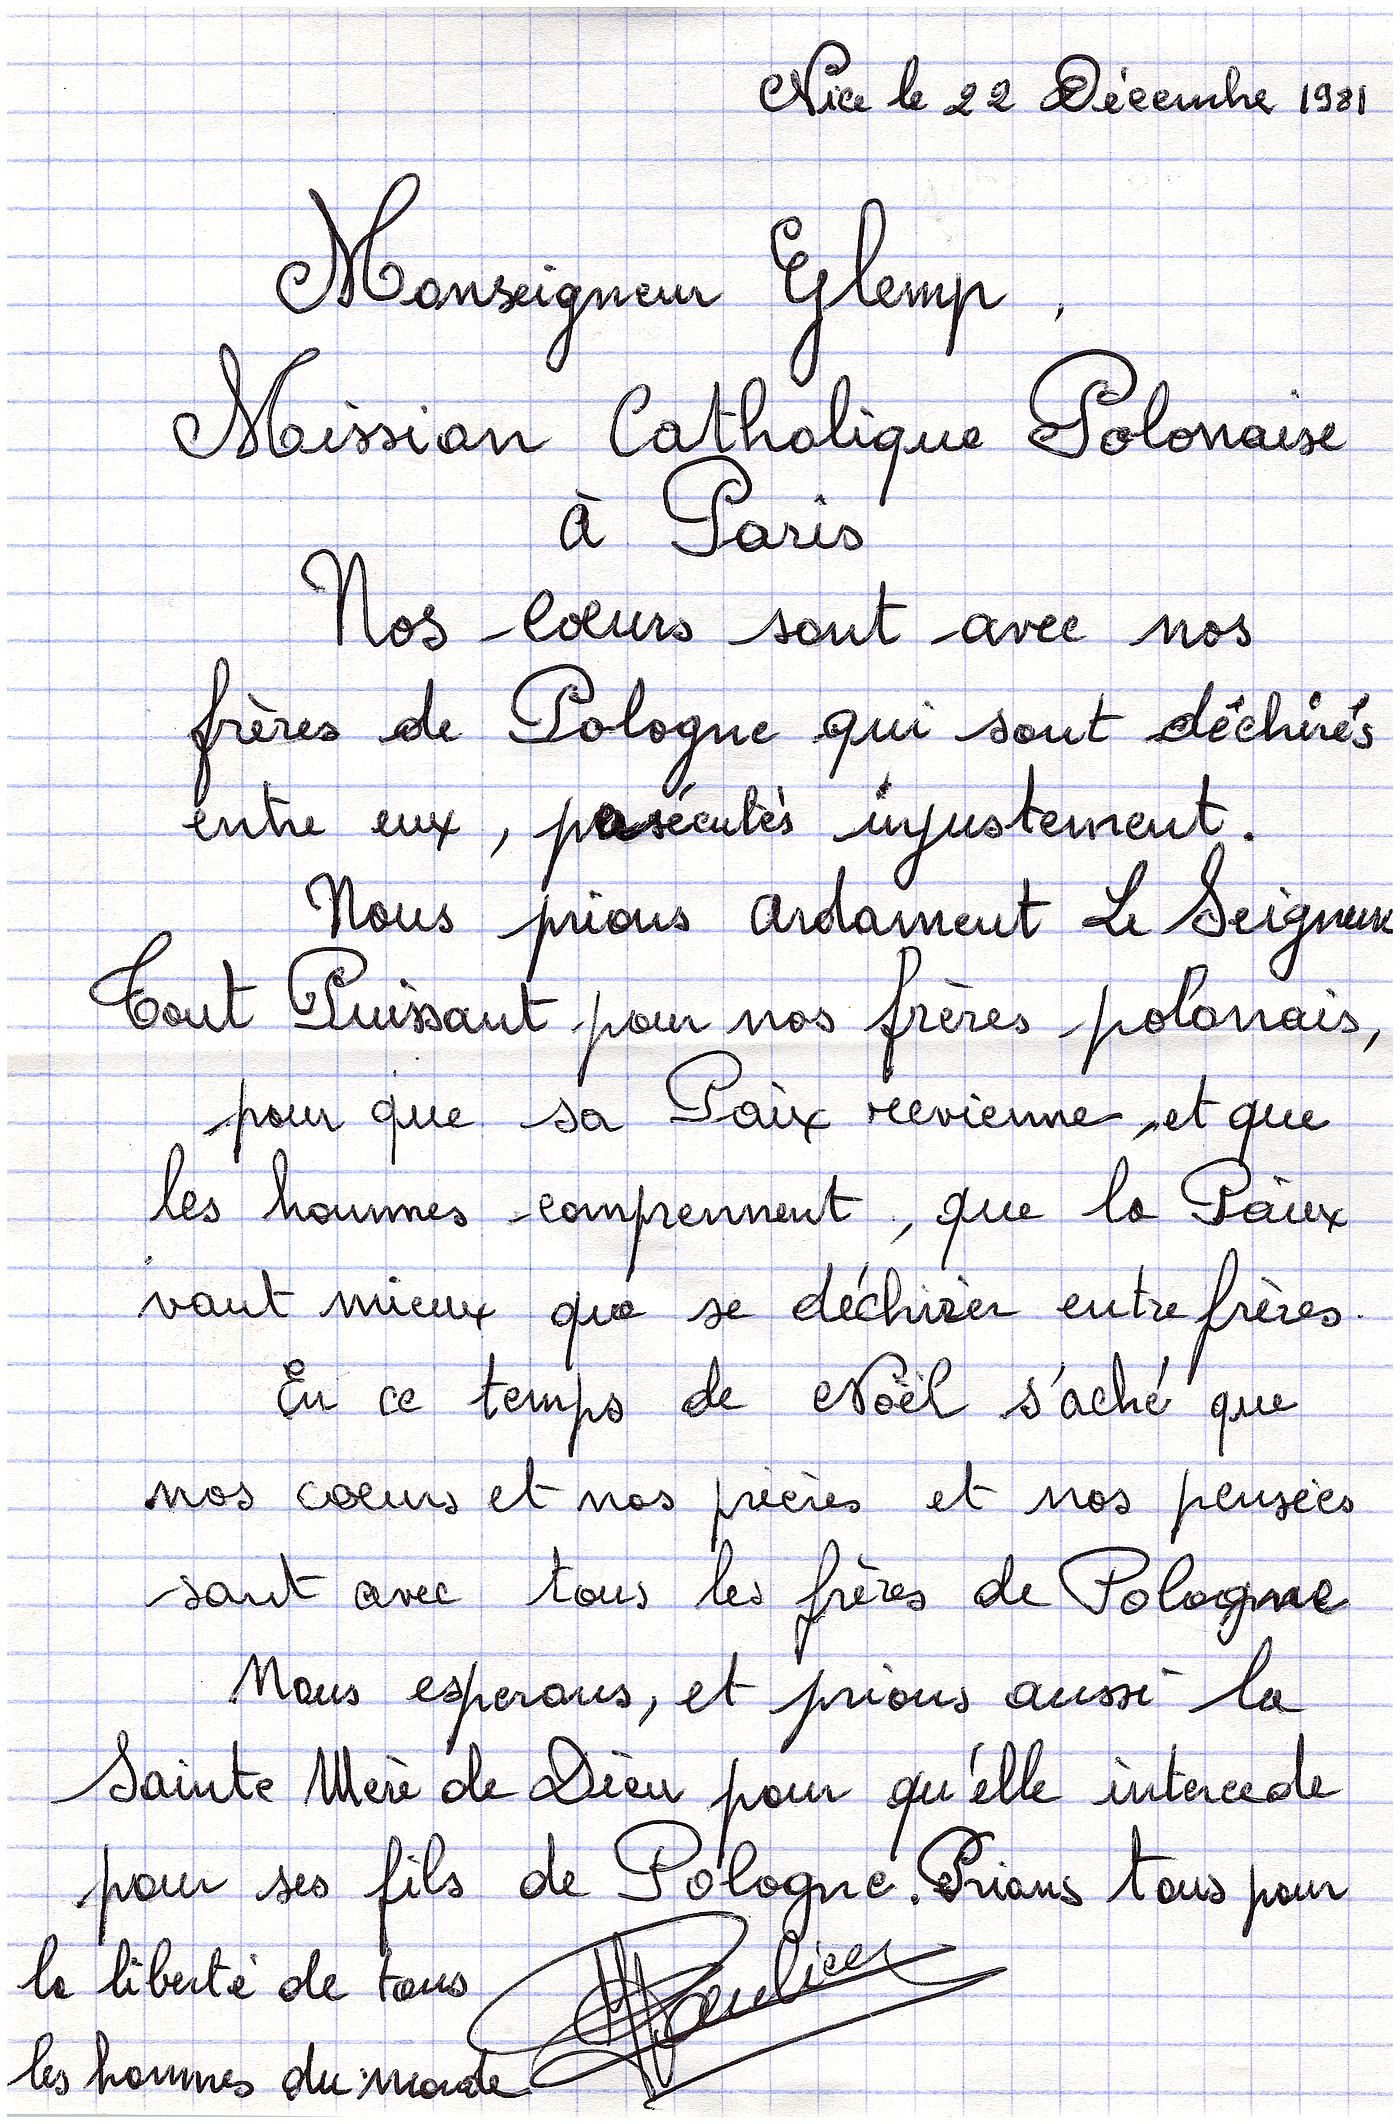 Nice le 22 Décembre 1981
Monseigneur Glemp,
Mission Catholique Polonaise
à Paris
Nos coeurs sont avec nos
frères de Pologne qui sont déchirés
entre eux, persécutés injustement.
Nous prions ardament Le Seigneur
Tout Puissant pour nos frères polonais,
pour que sa Paix revienne, et que
les hommes comprennent, que la Paix
vaut mieux que se déchirer entre frères.
En ce temps de Noël s'aché que
nos coeurs et nos prières et nos pensées
sont avec tous les frères de Pologne
Nous esperons, et prions aussi la
Sainte Mère de Dieu pour qu'élle intercede
pour ses fils de Pologne. Prions tous pour
la liberté de tous
les hommes du monde